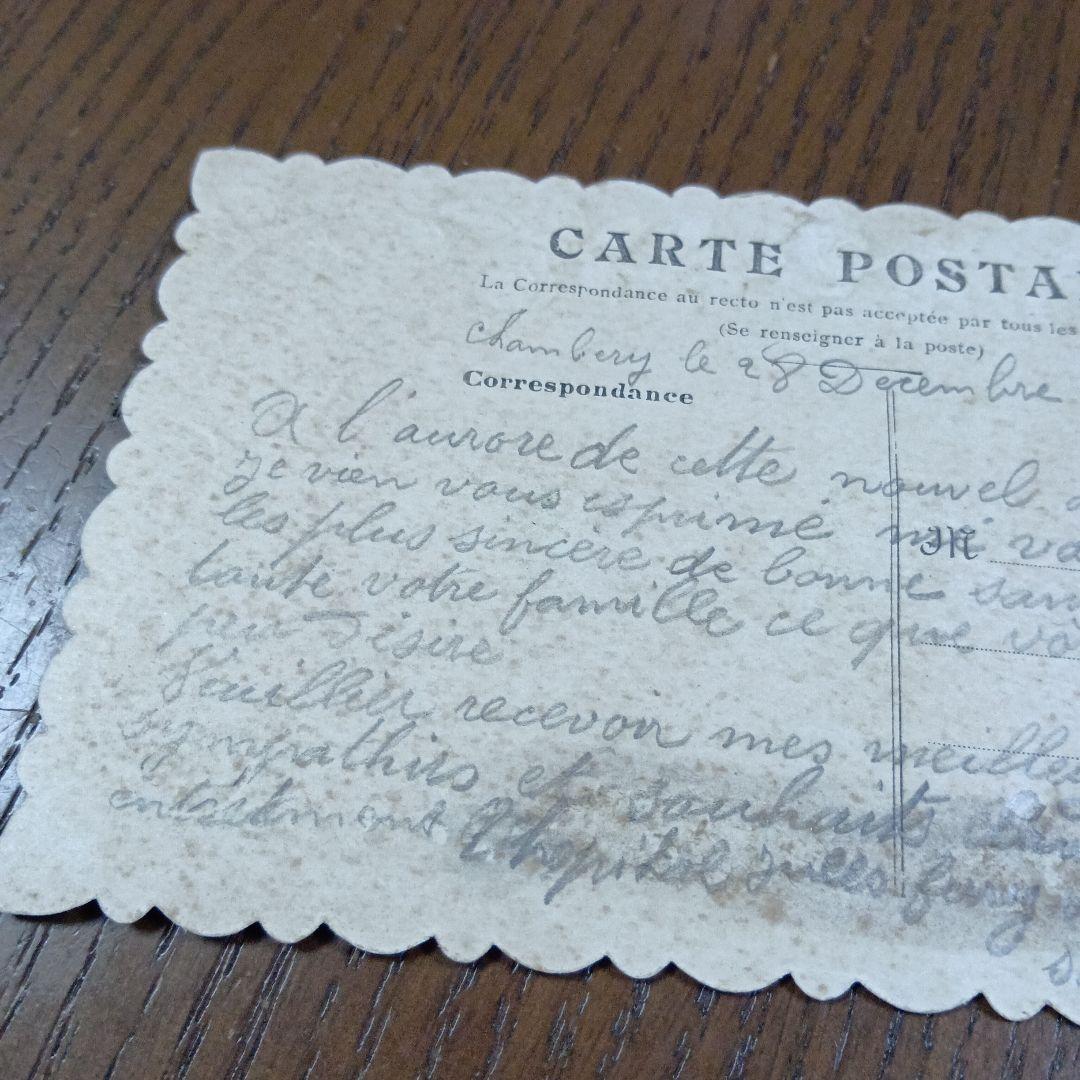 CARTE POSTA
La Correspondance au recto n'est pas acceptée par tous les
(Se renseigner à la poste)
Chambery le 28 Decembre
Correspondance
A l'aurore de cette nouvel
Je vien vous esprimé
les plus sincère de bonne san
M
toute votre famille ce que vo
peu Désiré
Veuillier recevoir mes meille
sympathies et souhaits
hopital Jules